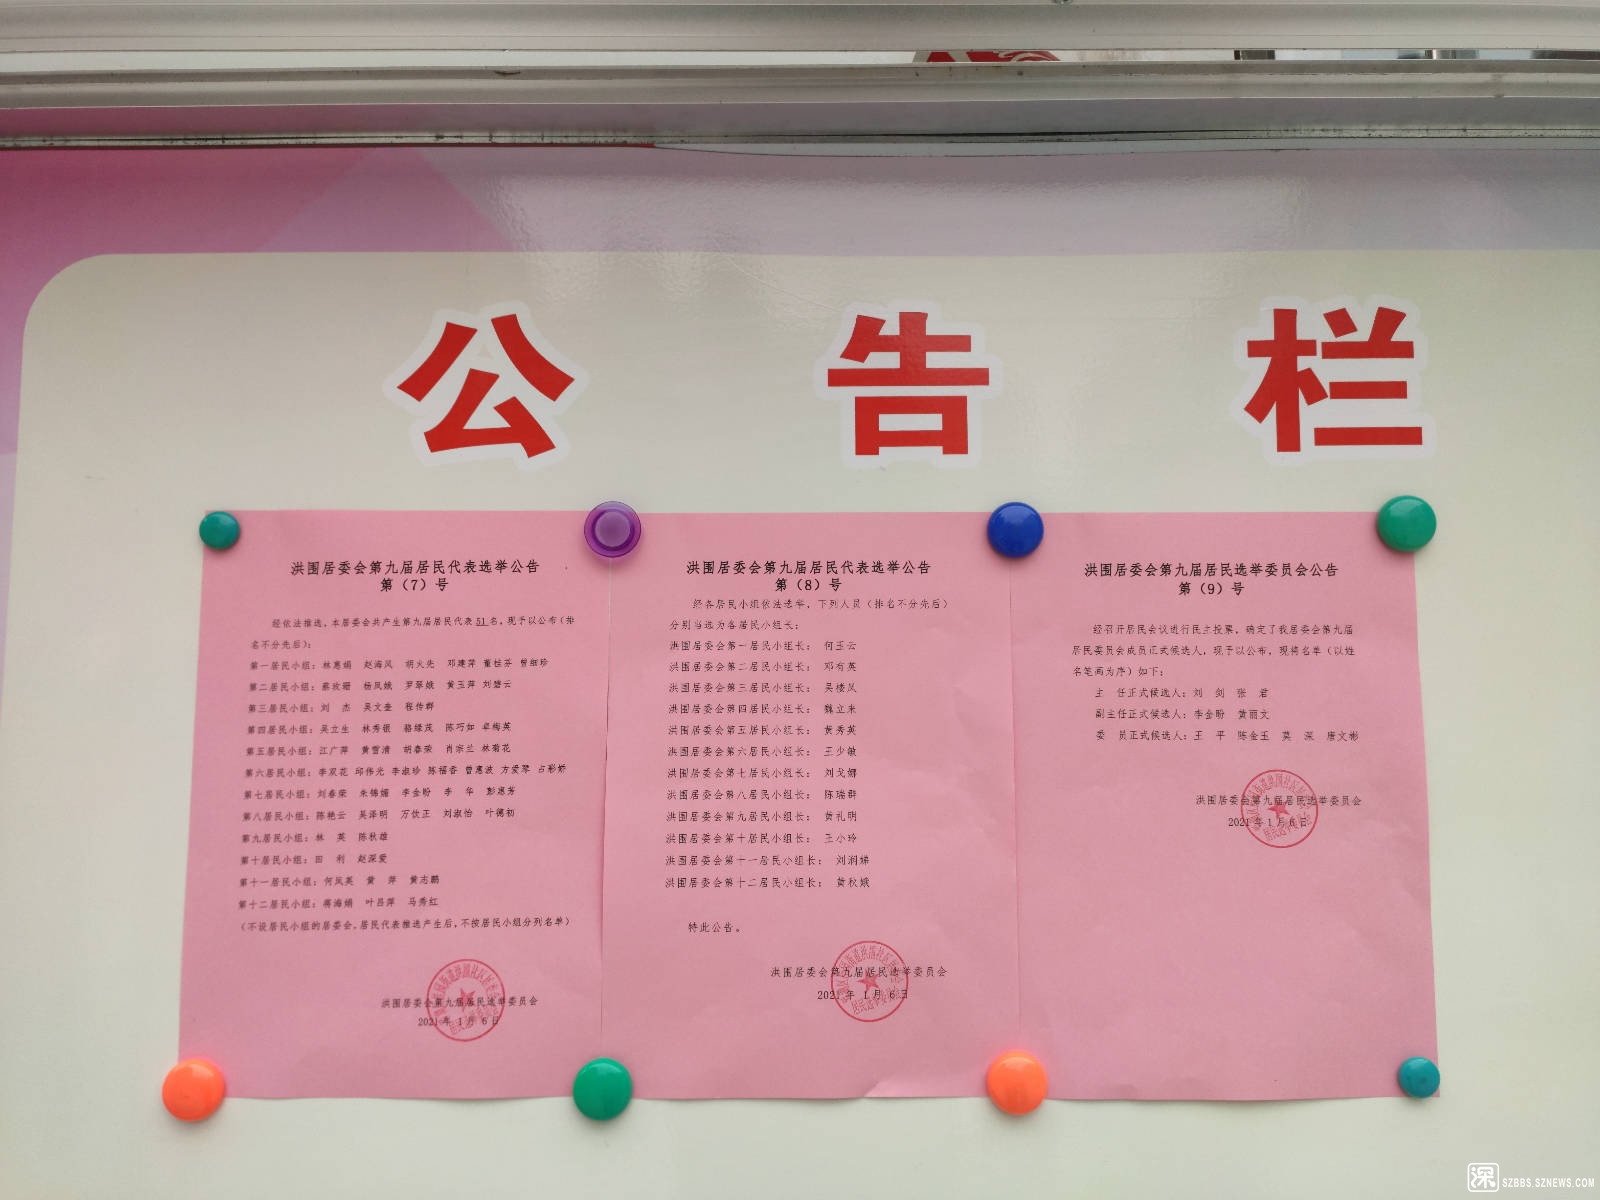 公告栏
洪围居委会第九届居民代表选举公告
第（7）号
经依法推选，本居委会共产生第九届居民代表51名，现予以公布（排
名不分先后）：
第一居民小组：林惠娟 赵海凤 胡火先 邓建萍 董桂芬 曾细珍
第二居民小组：蔡玫珊 杨凤娥 罗翠娥 黄玉萍 刘碧云
第三居民小组：刘 杰 吴文奎 程传群
第四居民小组：吴立生 林秀银 骆绿茂 陈巧如 卓梅英
第五居民小组：江广萍 黄雪清 胡春荣 肖宗兰 林菊花
第六居民小组：李双花 邱伟光 李淑珍 陈福香 曾惠波 方爱琴 占彩娇
第七居民小组：刘春荣 朱锦媚 李金盼 李 华 彭思芳
第八居民小组：陈艳云 吴泽明 万饮正 刘淑怡 叶德初
第九居民小组：林 英 陈秋雄
第十居民小组：田 利 赵深爱
第十一居民小组：何凤英 黄 萍 黄志鹏
第十二居民小组：蒋海娟 叶吕萍 马秀红
（不设居民小组的居委会，居民代表推选产生后，不按居民小组分列名单）
洪围居委会第九届居民选举委员会
2021年1月6日
洪围居委会第九届居民代表选举公告
第（8）号
经各居民小组依法选举，下列人员（排名不分先后）
分别当选为各居民小组长：
洪围居委会第一居民小组长： 何玉云
洪围居委会第二居民小组长： 邓有英
洪围居委会第三居民小组长： 吴楼凤
洪围居委会第四居民小组长： 魏立来
洪围居委会第五居民小组长： 黄秀英
洪围居委会第六居民小组长： 王少敏
洪围居委会第七居民小组长： 刘戈娜
洪围居委会第八居民小组长： 陈瑞群
洪围居委会第九居民小组长： 黄礼明
洪围居委会第十居民小组长： 王小玲
洪围居委会第十一居民小组长： 刘润娣
洪围居委会第十二居民小组长： 黄秋娥
特此公告。
洪围居委会第九届居民选举委员会
2021年1月6日
洪围居委会第九届居民选举委员会公告
第（9）号
经召开居民会议进行民主投票，确定了我居委会第九届
居民委员会成员正式候选人，现予以公布，现将名单（以姓
名笔画为序）如下：
主 任正式候选人：刘 剑 张 君
副主任正式候选人：李金盼 黄丽文
委 员正式候选人：王 平 陈金玉 莫 深 唐文彬
洪围居委会第九届居民选举委员会
2021年1月6日
深 SZBBS.SZNEWS.COM